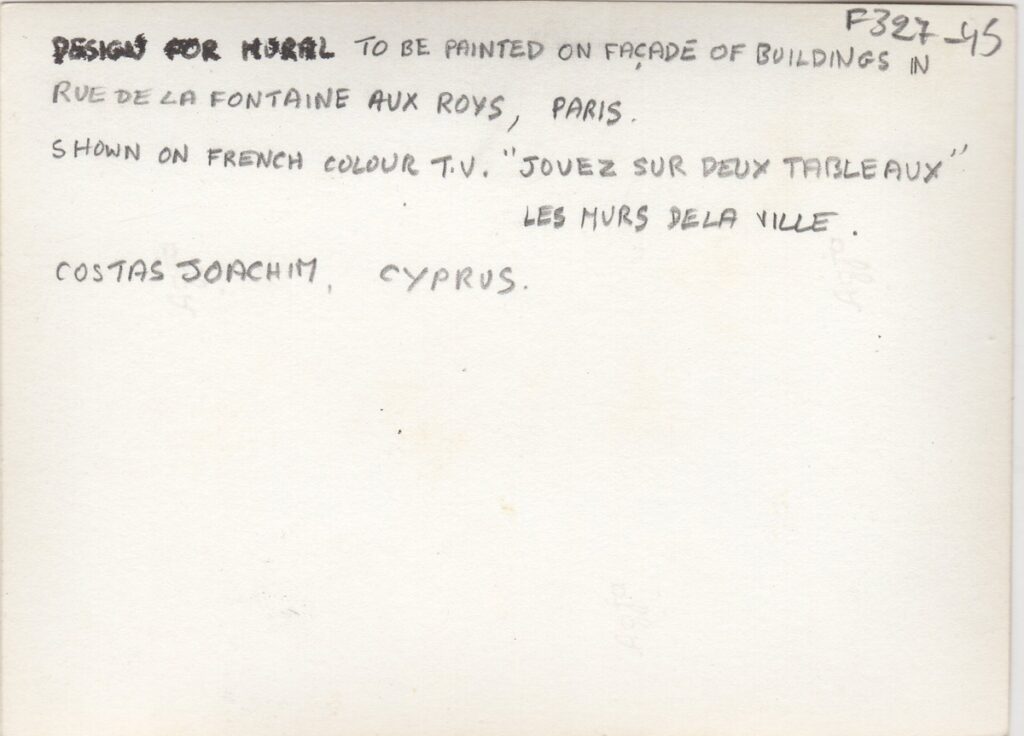 F327-45
DESIGN FOR MURAL TO BE PAINTED ON FAÇADE OF BUILDINGS IN
RUE DE LA FONTAINE AUX ROYS, PARIS.
SHOWN ON FRENCH COLOUR T.V. "JOUEZ SUR DEUX TABLEAUX"
LES MURS DE LA VILLE.
COSTAS JOACHIM, CYPRUS.